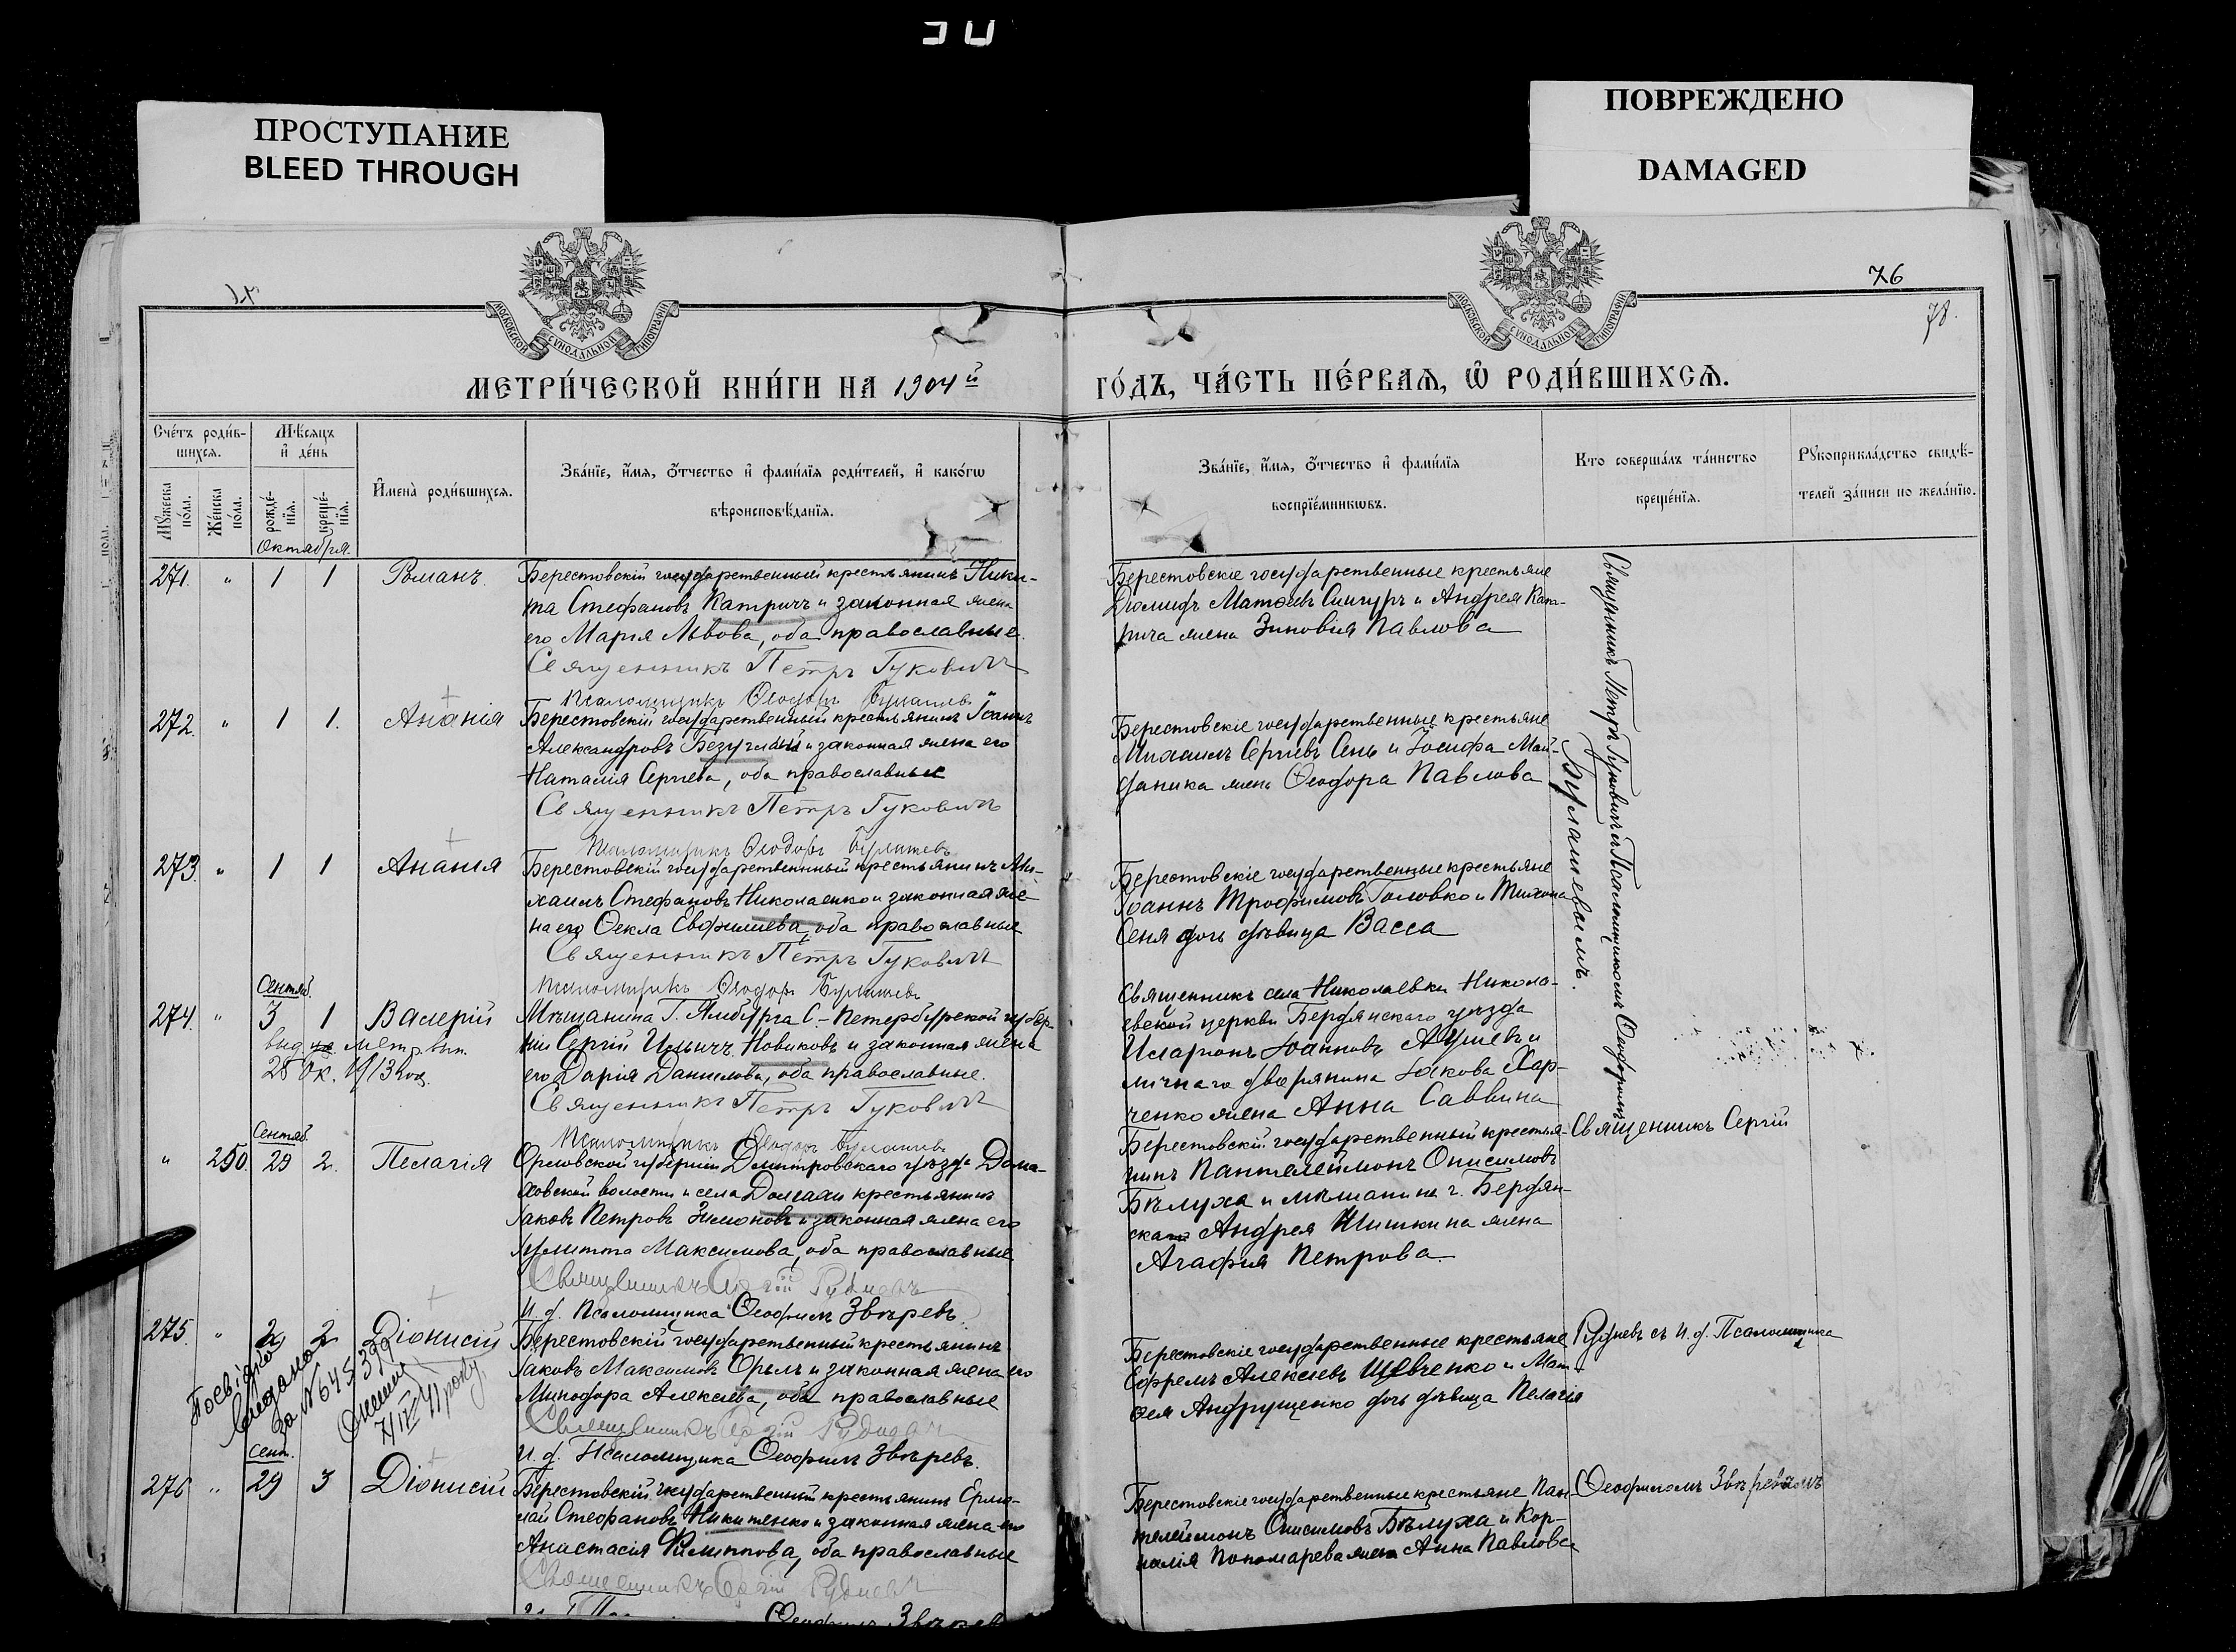 ПРОСТУПАНИЕ
BLEED THROUGH
ПОВРЕЖДЕНО
DAMAGED
76
78.
МОСКОВСКОЙ СѴНОДАЛЬНОЙ ТИПОГРАФІИ
МОСКОВСКОЙ СѴНОДАЛЬНОЙ ТИПОГРАФІИ
МЕТРИ́ЧЕСКОЙ КНИ́ГИ НА 1904й
ГО́ДЪ, ЧА́СТЬ ПЕ́РВАѦ, Ѽ РОДИ́ВШИХСѦ.
Сче́тъ роди́в-
шихсѧ.
Мꙋжеска по́ла.
Же́нска по́ла.
Мѣ́сѧцъ
и҆ де́нь
рожде́-
нїѧ.
креще́-
нїѧ.
Октября.
И҆мена̀ роди́вшихсѧ.
Зва́нїе, и҆́мѧ, ѻ҆́тчество и҆ фами́лїѧ роди́телей, и҆ како́гѡ
вѣроисповѣ́данїѧ.
Зва́нїе, и҆́мѧ, ѻ҆́тчество и҆ фами́лїѧ
воспрїе́мникѡвъ.
Кто соверша́лъ та́инство
креще́нїѧ.
Рꙋкоприкла́дство свидѣ́-
телей за́писи по жела́нїю.
271. " 1 1 Романъ.
Берестовскій государственный крестьянинъ Ники-
та Стефановъ Катричъ и законная жена
его Марія Львова, оба православные.
Священникъ Петръ Гуковичъ
Псаломщикъ Ѳеодоръ Булашевъ
Берестовскіе государственные крестьяне
Матѳеевъ Снигуръ и Андрея Кат-
рича жена Зиновія Павлова
272. " 1 1. Ананія
Берестовскій государственный крестьянинъ Іоаннъ
Александровъ Безуглый и законная жена его
Наталія Сергіева, оба православные
Священникъ Петръ Гуковичъ
Псаломщикъ Ѳеодоръ Булашевъ
Берестовскіе государственные крестьяне
Михаилъ Сергіевъ Сень и Іосифа Май-
даника жена Ѳеодора Павлова
273. " 1 1 Ананія
Берестовскій государственный крестьянинъ Ми-
хаилъ Стефановъ Николаенко и законная же-
на его Ѳекла Евфиміева, оба православные
Священникъ Петръ Гуковичъ
Псаломщикъ Ѳеодоръ Булашевъ
Берестовскіе государственные крестьяне
Іоаннъ Трофимовъ Головко и Тихона
Сеня дочь дѣвица Васса
Сентяб.
274. " 3 1 Валерій
выд. метр. вып.
28 Ок. 1913 год.
Мѣщанина Г. Ямбурга С-Петербургской губер-
ніи Сергій Ильичъ Новиковъ и законная жена
его Дарія Данилова, оба православные.
Священникъ Петръ Гуковичъ
Псаломщикъ Ѳеодоръ Булашевъ
Священникъ села Николаевки Никола-
евской церкви Бердянскаго уѣзда
Иларіонъ Іоанновъ и
личнаго дворянина Іакова Хар-
ченко жена Анна Саввина
Священникъ Петръ Гуковичъ и Псаломщикомъ Ѳеодоромъ
Булашевымъ.
Сентяб.
" 250 29 2. Пелагія
Орловской губерніи Дмитровскаго уѣзда Дома-
ховской волости и села Долгаго крестьянинъ
Іаковъ Петровъ Зимоновъ и законная жена его
Іулитта Максимова, оба православные
Священникъ Сергій Рудневъ
И. д. Псаломщика Ѳеофилъ Звѣревъ.
Берестовскій государственный крестья-
нинъ Пантелеймонъ Онисимовъ
Бѣлуха и мѣщанина г. Бердян-
ска Андрея Шишкина жена
Агафія Петрова.
Священникъ Сергій
275. " 2 2 Діонисій
Посвідка
видана
за № 645/399
7/IV 41 року.
Берестовскій государственный крестьянинъ
Іаковъ Максимовъ Орелъ и законная жена его
Минодора Алексіева, оба православные
Священникъ Сергій Рудневъ
И. д. Псаломщика Ѳеофилъ Звѣревъ.
Берестовскіе государственные крестьяне
Ефремъ Алексіевъ Шевченко и Мат-
ѳея Андрущенко дочь дѣвица Пелагія
Рудневъ съ И. д. Псаломщика
Сент.
276 " 29 3 Діонисій
Берестовскій государственный крестьянинъ Ермо-
лай Стефановъ Никитенко и законная жена его
Анастасія Филиппова, оба православные
Священникъ Сергій Рудневъ
Ѳеофилъ Звѣревъ
Берестовскіе государственные крестьяне Пан-
телеймонъ Онисимовъ Бѣлуха и Кор-
нилія Пономарева жена Анна Павлова
Ѳеофиломъ Звѣревымъ